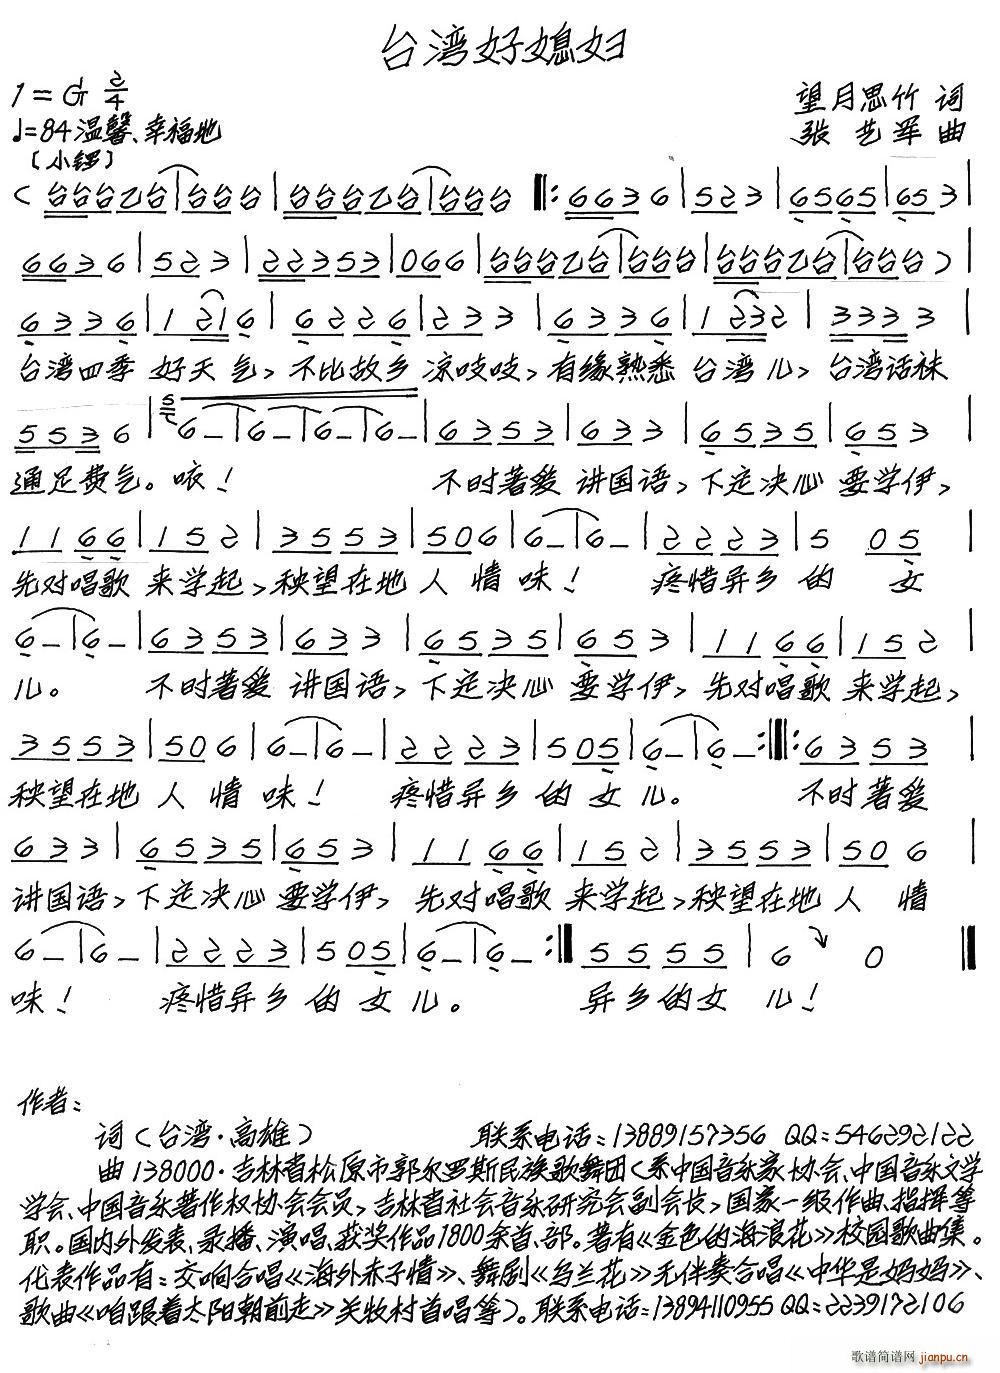 台湾好媳妇
1=G 2/4
望月思竹 词
♩=84 温馨、幸福地
张艺军 曲
〔小锣〕
( 台台台乙台|台台台|台台台乙台|台台台 ‖: 6636|523|6565|653|
6636|523|22353|066|台台台乙台|台台台|台台台乙台|台台台)|
6336|1216|6226|233|6336|1232|3333|
台湾四季 好天气,不比故乡 凉吱吱,有缘熟悉 台湾儿,台湾话袜
5536|6—|6—|6—|6—|6353|633|6535|653|
通足费气。咳! 不时著爱 讲国语,下定决心 要学伊,
1166|152|3553|506|6—|6—|2223|5 05|
先对唱歌 来学起,秧望在地 人 情 味! 疼惜异乡 的 女
6—|6—|6353|633|6535|653|1166|152|
儿。 不时著爱 讲国语,下定决心 要学伊,先对唱歌 来学起,
3553|506|6—|6—|2223|505|6—|6—:‖:6353|
秧望在地 人 情 味! 疼惜异乡 的 女 儿。 不时著爱
633|6535|653|1166|152|3553|506|
讲国语,下定决心 要学伊,先对唱歌 来学起,秧望在地 人 情
6—|6—|2223|505|6—|6—:‖5555|6 0‖
味! 疼惜异乡 的 女 儿。 异乡的女 儿!
作者:
词(台湾·高雄) 联系电话:13889157356 QQ:546292122
曲 138000·吉林省松原市郭尔罗斯民族歌舞团(系中国音乐家协会、中国音乐文学
学会、中国音乐著作权协会会员,吉林省社会音乐研究会副会长,国家一级作曲、指挥等
职。国内外发表、录播、演唱、获奖作品1800余首、部。著有《金色的海浪花》校园歌曲集。
代表作品有:交响合唱《海外赤子情》、舞剧《乌兰花》无伴奏合唱《中华是妈妈》、
歌曲《咱跟着太阳朝前走》关牧村首唱等)。联系电话:13894110955 QQ:2239172106
歌谱简谱网 jianpu.cn